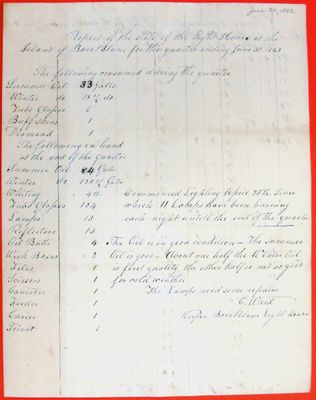 June 30, 1843.
Report of the State of the Light House at the
Island of Bois Blanc for the quarter ending June 30 1843
The following consumed during the quarter
Summer Oil 33 Galls.
Winter do 18 do.
Tube Glasses
Buff Skins 1
1
The following on hand
at the end of the Quarter
Summer Oil 84 Galls
Winter do Galls
Whiting 40 Commenced Lighting April 25th Since
Tube Glasses 124 which 11 Lamps have been burning
Lamps 13 each night untill the end of the Quarter
Reflectors 13
Oil Butts 4 The Oil is in good condition – The Summer
Wick Boxes 2 Oil is good – About one half the Winter Oil
Files 1 is first quality, the other half is not so good
Scissors 1 for cold weather
Canister 1 The Lamps need some repairs
Feeder 1 C. Ward
Carrier 1 Keeper Boisblanc Light House
1